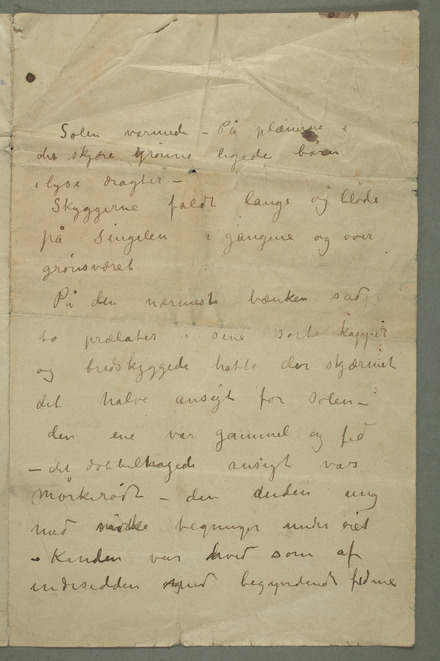 Solen varmede – På plænerne i
det skjøre grønne legede børn
i lyse dragter –
Skyggerne faldt lange og bløde
på Singelen i gangene og over
grønsværet
På den nærmeste bænken sad
to prælater i sine sorte kapper
og bredskyggede hatte der skjærmet
det halve ansigt for solen –
den ene var gammel og fed
– det dobbelhagede ansigt var
mörkerødt – den anden ung
med bøgninger under öiet
– Kinden var hvid som af
indesidden med begyndende fedme